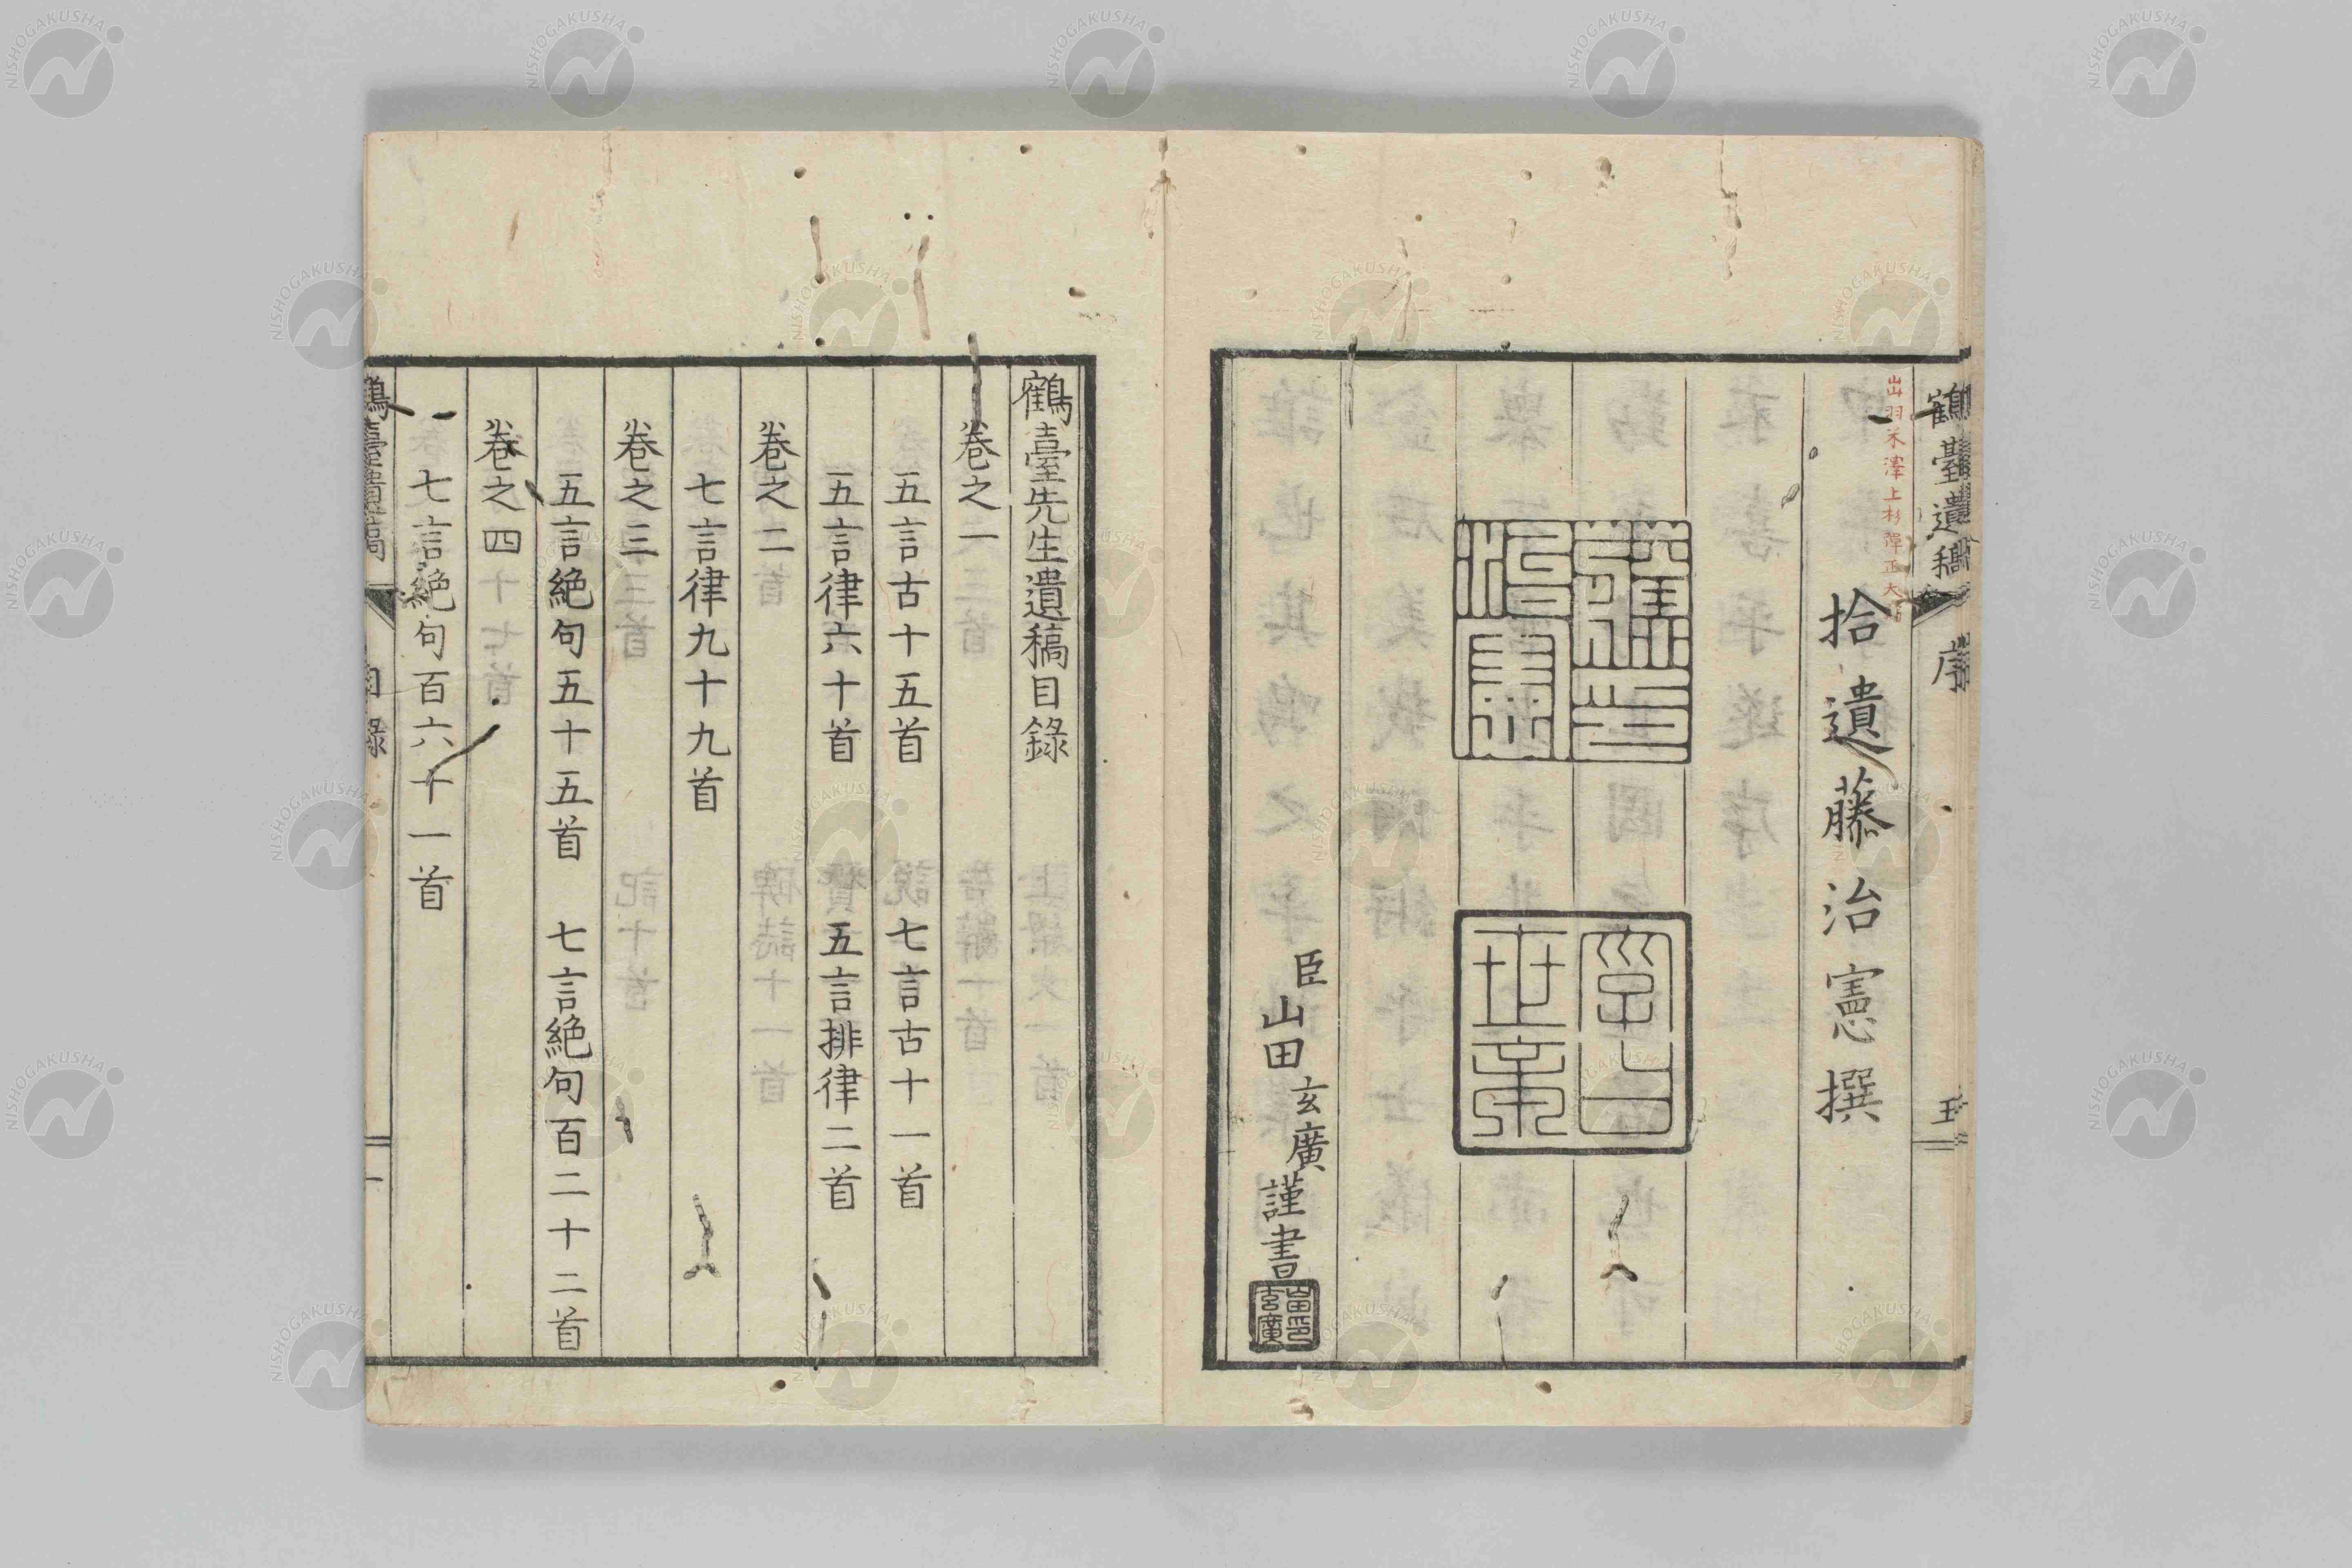 鶴臺遺稿 序 五
出羽米澤上杉彈正大
拾遺藤治憲撰
臣山田玄廣謹書
鶴臺先生遺稿目錄
卷之一
五言古十五首 七言古十一首
五言律六十首 五言排律二首
卷之二
七言律九十九首
卷之三
五言絕句五十五首 七言絕句百二十二首
卷之四
七言絕句百六十一首
鶴臺遺稿 目錄 一
NISHOGAKUSHA